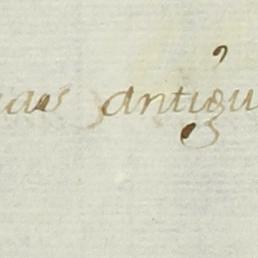 as antigu